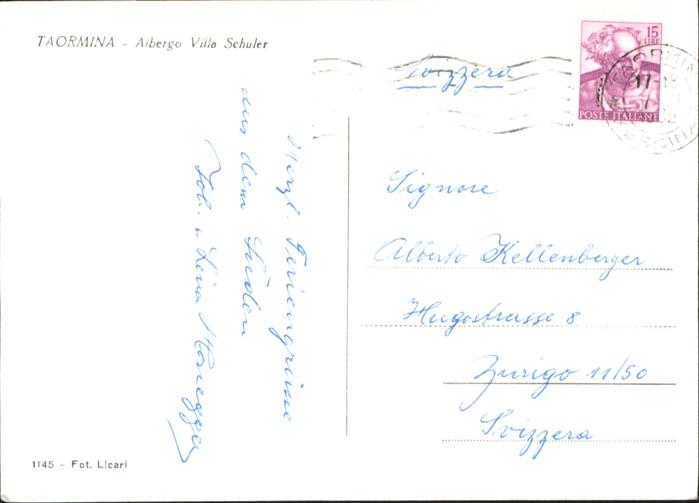 TAORMINA - Albergo Villa Schuler
Svizzera
15
LIRE
POSTE ITALIANE
17-
Herzl. Feriengrüsse
aus dem Süden
Joh. u. Lina Honegger
Signore
Alberto Kellenberger
Hugostrasse 8
Zurigo 11/50
Svizzera
1145 - Fot. Licari